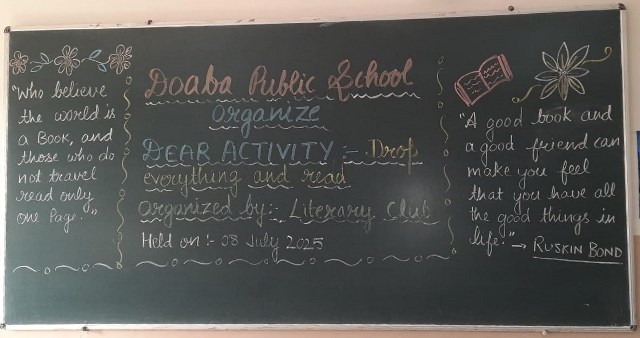 "Who believe
the world is
a Book, and
those who do
not travel
read only
one Page."
Doaba Public School
Organize
DEAR ACTIVITY :- Drop
everything and read
Organized by:- Literary Club
Held on :- 08 July 2025
"A good book and
a good friend can
make you feel
that you have all
the good things in
life." → RUSKIN BOND